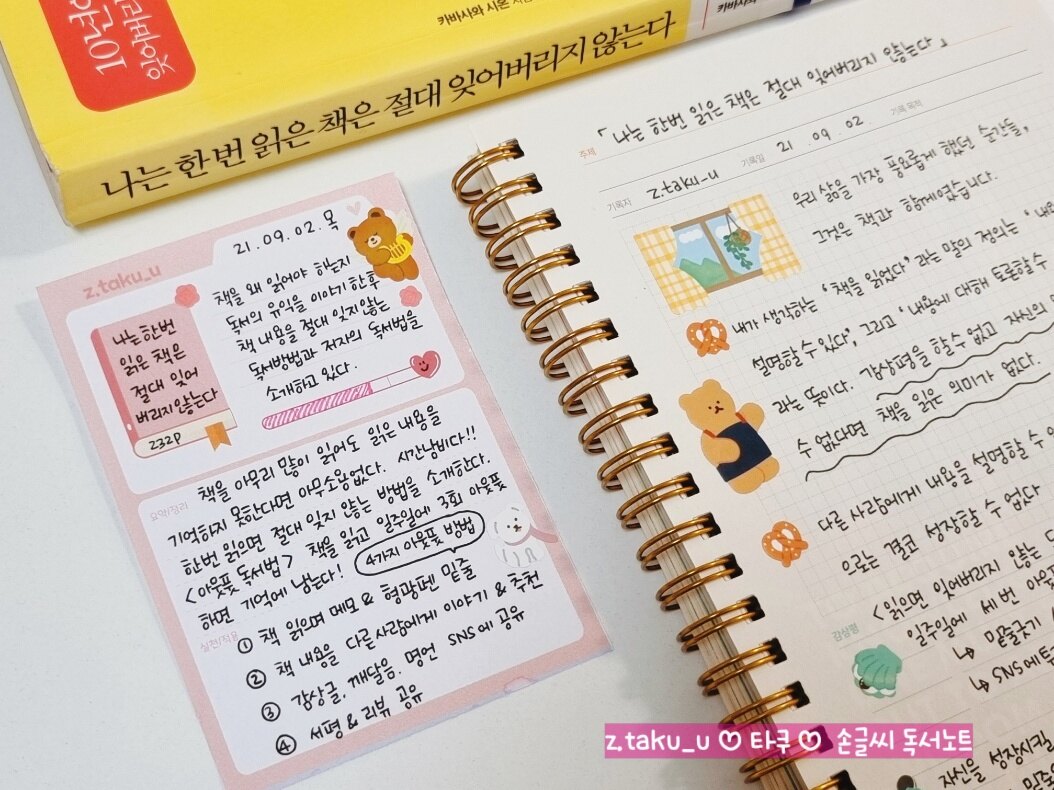 10년이
카바사와 시온
나는 한 번 읽은 책은 절대 잊어버리지 않는다
z.taku_u
21. 09. 02. 목
나는 한번
읽은 책은
절대 잊어
버리지않는다
232p
책을 왜 읽어야 하는지
독서의 유익을 이야기 한 후
책 내용을 절대 잊지않는
독서방법과 저자의 독서법을
소개하고 있다.
요약/정리
책을 아무리 많이 읽어도 읽은 내용을
기억하지 못한다면 아무소용없다. 시간낭비다!!
한번 읽으면 절대 잊지 않는 방법을 소개한다.
<아웃풋 독서법> 책을 읽고 일주일에 3회 아웃풋
하면 기억에 남는다! 4가지 아웃풋 방법
실천/적용
① 책 읽으며 메모 & 형광펜 밑줄
② 책 내용을 다른 사람에게 이야기 & 추천
③ 감상글, 깨달음, 명언 SNS에 공유
④ 서평 & 리뷰 공유
주제 「나는 한번 읽은 책은 절대 잊어버리지 않는다」
기록자 z.taku_u 기록일 21. 09. 02. 기록 목적
우리 삶을 가장 풍요롭게 했던 순간들,
그것은 책과 함께였습니다.
내가 생각하는 '책을 읽었다' 라는 말의 정의는
설명할 수 있다', 그리고 '내용에 대해 토론할 수
라는 뜻이다. 감상평을 할 수 없고 자신의
수 없다면 책을 읽은 의미가 없다.
다른 사람에게 내용을 설명할 수
으로는 결코 성장할 수 없다
감상평
<읽으면 잊어버리지 않는
일주일에 세 번 아웃풋
↳ 밑줄긋기
↳ SNS에
자신을 성장시킬
z.taku_u ♡ 타쿠 ♡ 손글씨 독서노트